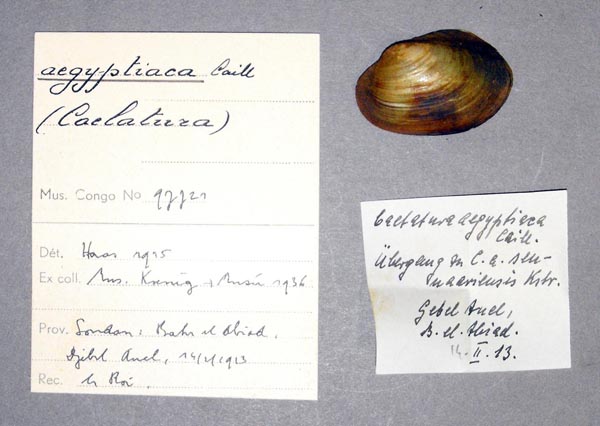 aegyptiaca Caill
(Caelatura)
Mus. Congo No 97721
Dét. Haas 1915
Ex coll. Mus. Koenig 1936
Prov. Soudan: Bahr el Abiad,
Djebl Auel, 14/2/1913
Rec. le Roi.
Caelatura aegyptiaca
Caill.
Übergang zu C. a. sen-
naariensis Kstr.
Gebel Auel,
B. el. Abiad.
14. II. 13.